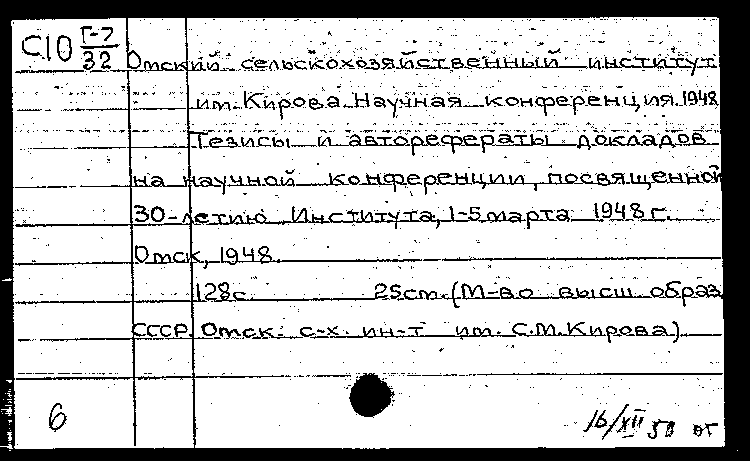 С10 Г-7/32 Омский сельскохозяйственный институт
им. Кирова. Научная конференция. 1948
Тезисы и авторефераты докладов
на научной конференции, посвященной
30-летию Института, 1-5 марта 1948 г.
Омск, 1948.
128с. 25см. (М-во высш. образ.
СССР. Омск. с-х. ин-т им. С.М. Кирова)
6
16/XII 50